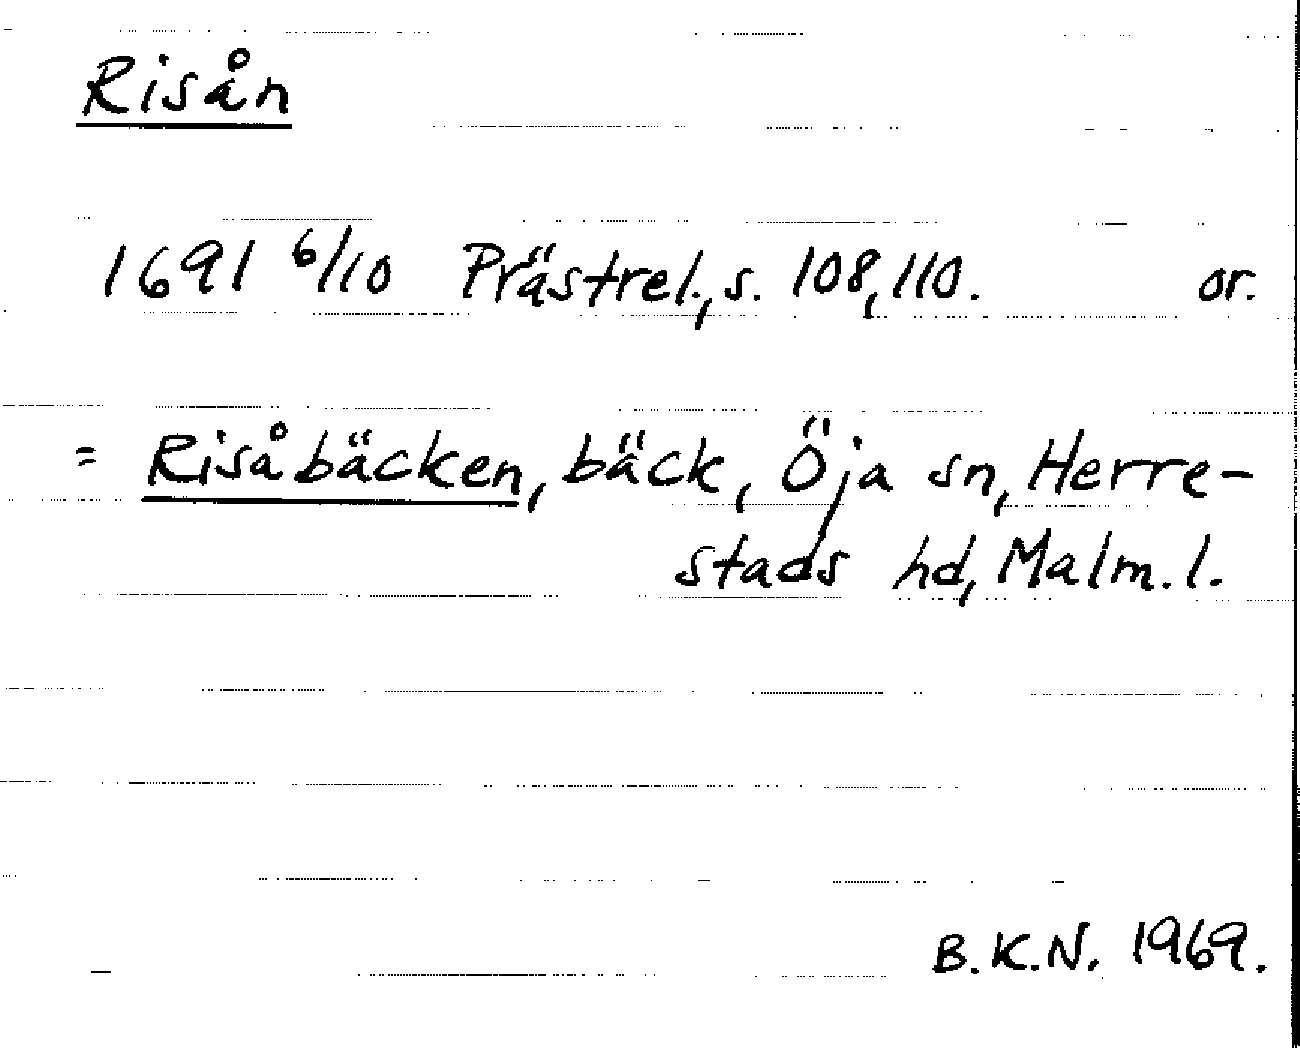 Risån
1691 6/10 Prästrel., s. 108, 110. or.
= Risåbäcken, bäck, Öja sn, Herre-
stads hd, Malm. l.
B.K.N. 1969.